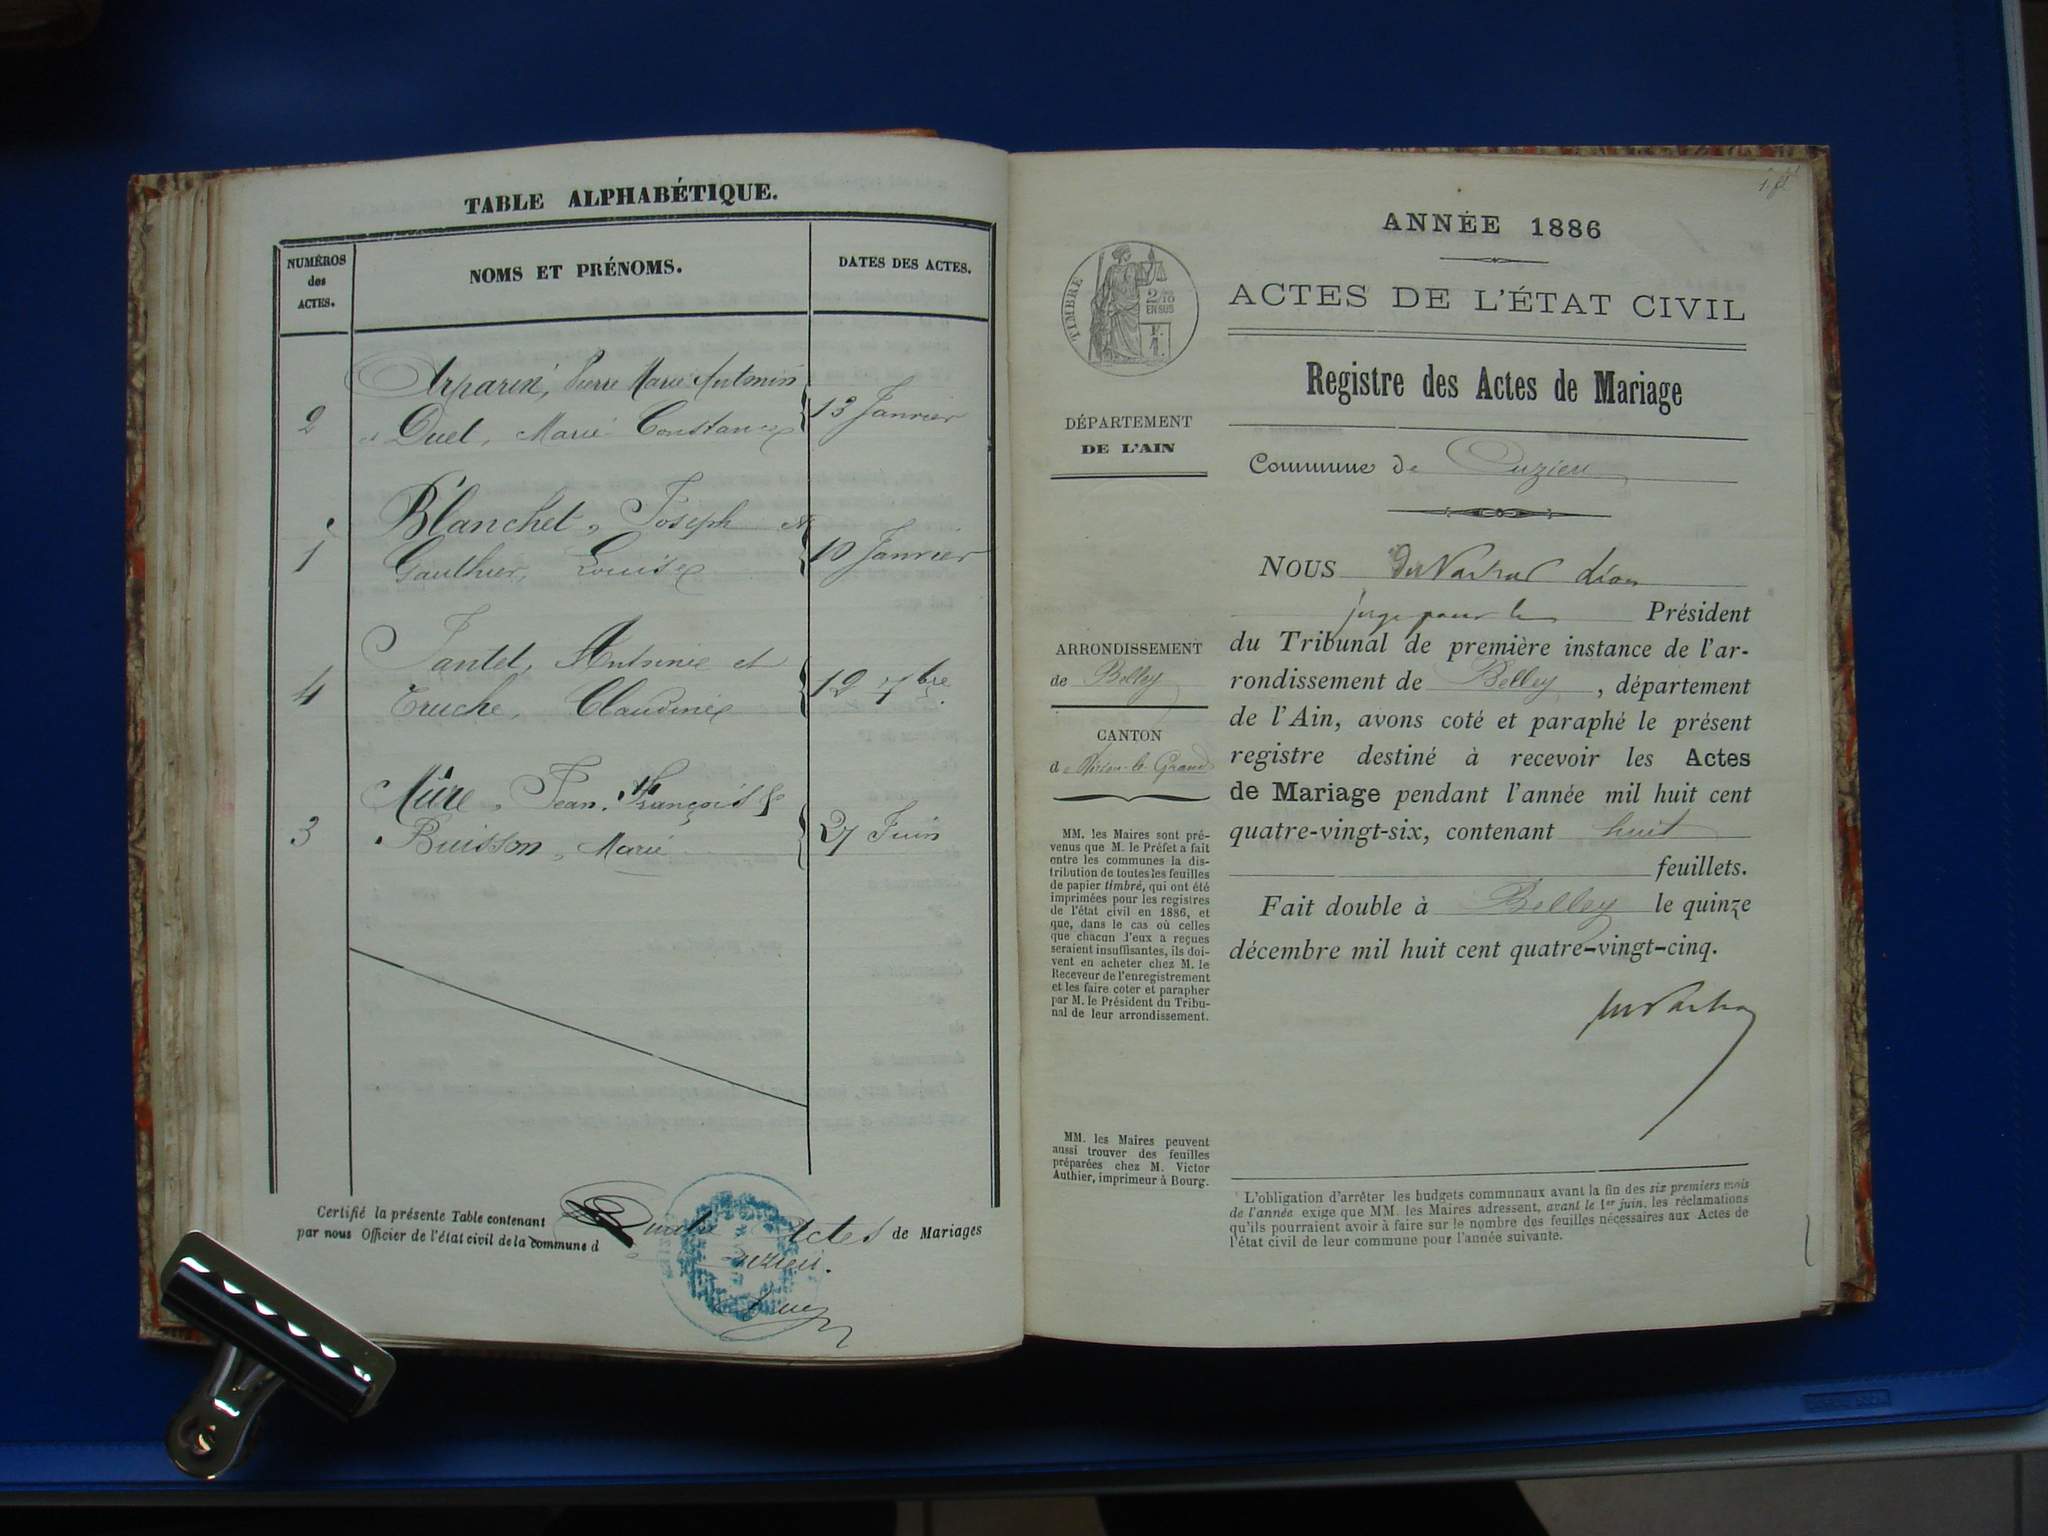 TABLE ALPHABÉTIQUE.
NUMÉROS
des
ACTES.
NOMS ET PRÉNOMS.
DATES DES ACTES.
2
Arparin, Pierre Marie Antonin
et Duel, Marie Constance
13 Janvier
1
Blanchet, Joseph et
Gauthier, Louise
10 Janvier
4
Jantet, Antoine et
Truche, Claudine
12 7bre
3
Mûre, Jean-François &
Buisson, Marie
27 Juin
Certifié la présente Table contenant Quatre Actes de Mariages
par nous Officier de l'état civil de la commune d
Cuzieu.
1. ft
ANNÉE 1886
ACTES DE L'ÉTAT CIVIL
TIMBRE
2/10
EN SUS
Registre des Actes de Mariage
DÉPARTEMENT
DE L'AIN
Commune de Cuzieu
NOUS Léon
juge pour le Président
du Tribunal de première instance de l'ar-
rondissement de Belley, département
de l'Ain, avons coté et paraphé le présent
registre destiné à recevoir les Actes
de Mariage pendant l'année mil huit cent
quatre-vingt-six, contenant huit
feuillets.
Fait double à Belley le quinze
décembre mil huit cent quatre-vingt-cinq.
ARRONDISSEMENT
de Belley
CANTON
de Virieu-le-Grand
MM. les Maires sont pré-
venus que M. le Préfet a fait
entre les communes la dis-
tribution de toutes les feuilles
de papier timbré, qui ont été
imprimées pour les registres
de l'état civil en 1886, et
que, dans le cas où celles
que chacun d'eux a reçues
seraient insuffisantes, ils doi-
vent en acheter chez M. le
Receveur de l'enregistrement
et les faire coter et parapher
par M. le Président du Tribu-
nal de leur arrondissement.
MM. les Maires peuvent
aussi trouver des feuilles
préparées chez M. Victor
Authier, imprimeur à Bourg.
L'obligation d'arrêter les budgets communaux avant la fin des six premiers mois
de l'année exige que MM. les Maires adressent, avant le 1er juin, les réclamations
qu'ils pourraient avoir à faire sur le nombre des feuilles nécessaires aux Actes de
l'état civil de leur commune pour l'année suivante.